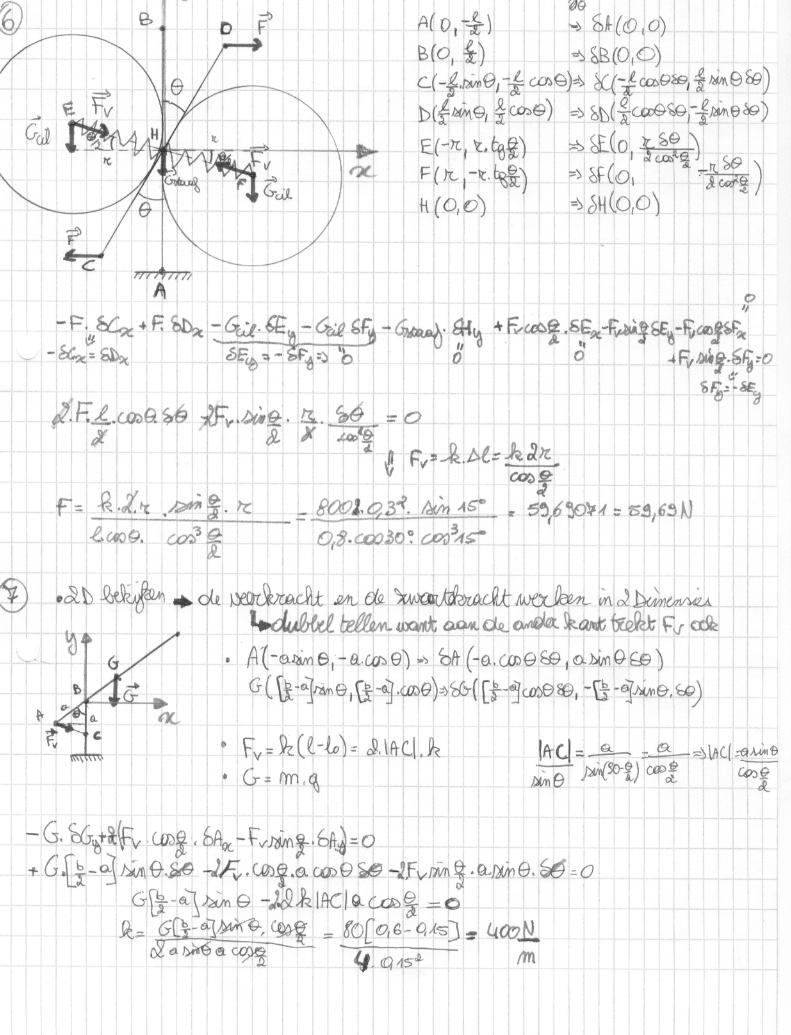 6
B
D
F
θ
E
Fv
H
Gcil
θ/2
r
r
Fv
x
Gstaaf
F
Gcil
θ
F
C
A
A(0, -l/2) => δA(0,0)
B(0, l/2) => δB(0,0)
C(-l/2 sinθ, -l/2 cosθ) => δC(-l/2 cosθ δθ, l/2 sinθ δθ)
D(l/2 sinθ, l/2 cosθ) => δD(l/2 cosθ δθ, -l/2 sinθ δθ)
E(-r, r.tg θ/2) => δE(0, r δθ / 2cos² θ/2)
F(r, -r.tg θ/2) => δF(0, -r δθ / 2cos² θ/2)
H(0,0) => δH(0,0)
-F. δCx + F. δDx - Gcil. δEy - Gcil δFy - Gstaaf. δHy + Fv cos θ/2. δEx - Fv sin θ/2 δEy - Fv cos θ/2 δFx
-δCx = δDx δEy = -δFy => 0 0 0 + Fv sin θ/2. δFy = 0
δFy = -δEy
2.F. l/2 .cosθ.δθ - 2Fv.sin θ/2 . r/2 . δθ / cos² θ/2 = 0
⇓ Fv = k.Δl = k 2r / cos θ/2
F = k.2.r .sin θ/2 . r / l cosθ. cos³ θ/2 = 800.2.0,3². sin 15° / 0,8.cos30°. cos³15° = 59,69071 = 59,69 N
7 • 2D bekijken → de veerkracht en de zwaartekracht werken in 2 Dimensies
↳ dubbel tellen want aan de ander kant trekt Fv ook
y
G
B
G
x
A
a
θ
a
Fv
C
• A(-a sinθ, -a.cosθ) => δA(-a.cosθ δθ, a sinθ δθ)
G([b/2-a] sinθ, [b/2-a].cosθ) => δG([b/2-a] cosθ δθ, -[b/2-a] sinθ. δθ)
• Fv = k(l-l0) = 2.|AC|.k |AC| / sinθ = a / sin(90-θ/2) = a / cos θ/2 => |AC| = a sinθ / cos θ/2
• G = m.g
-G. δGy + 2(Fv. cos θ/2. δAx - Fv sin θ/2. δAy) = 0
+ G.[b/2-a] sinθ.δθ - 2Fv. cos θ/2. a cosθ δθ - 2Fv sin θ/2. a sinθ. δθ = 0
G[b/2-a] sinθ - 2.2k|AC| a cos θ/2 = 0
k = G[b/2-a] sinθ. cos θ/2 / 2 a sinθ a cos θ/2 = 80[0,6-0,15] / 4. 0,15² = 400 N/m